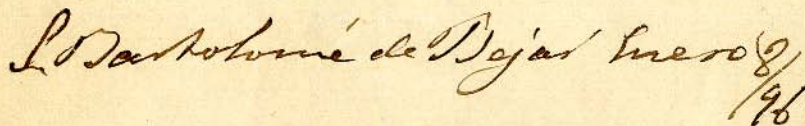 S. Bartolomé de Bejar Enero 8/96